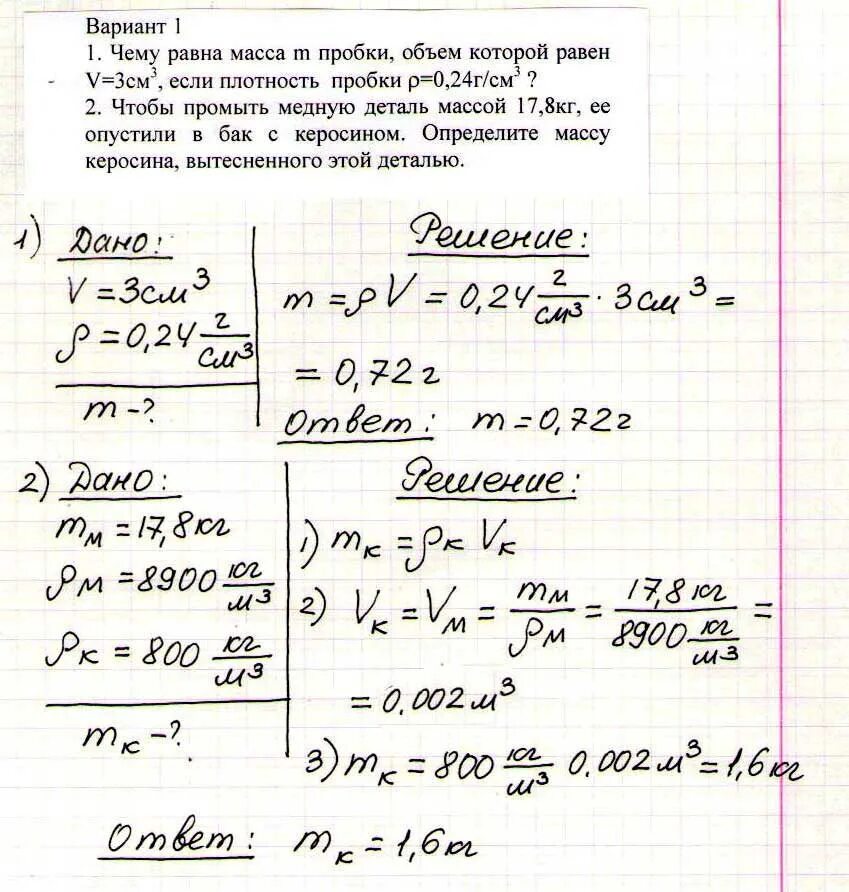 Вариант 1
1. Чему равна масса m пробки, объем которой равен
V=3см³, если плотность пробки ρ=0,24г/см³ ?
2. Чтобы промыть медную деталь массой 17,8кг, ее
опустили в бак с керосином. Определите массу
керосина, вытесненного этой деталью.
1) Дано:
V = 3см³
ρ = 0,24 г/см³
m - ?
Решение:
m = ρV = 0,24 г/см³ · 3см³ =
= 0,72 г
Ответ: m = 0,72 г
2) Дано:
mм = 17,8 кг
ρм = 8900 кг/м³
ρк = 800 кг/м³
mк - ?
Решение:
1) mк = ρк Vк
2) Vк = Vм = mм/ρм = 17,8 кг/8900 кг/м³ =
= 0.002 м³
3) mк = 800 кг/м³ 0.002 м³ = 1,6 кг
Ответ: mк = 1,6 кг